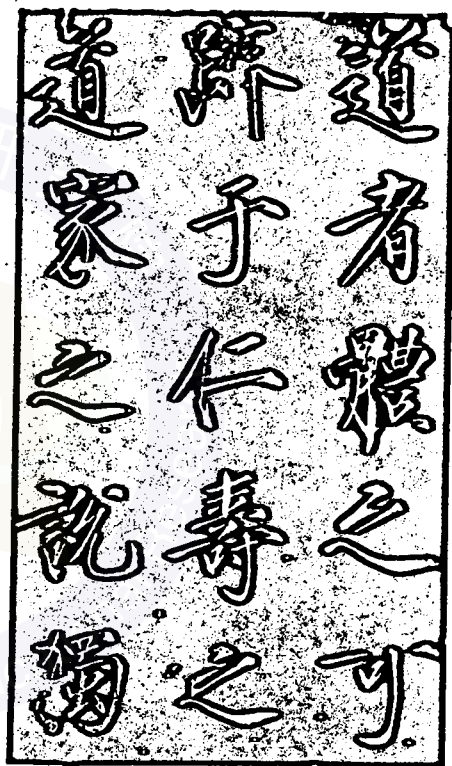 道者體之可
躋于仁壽之
道家之說獨